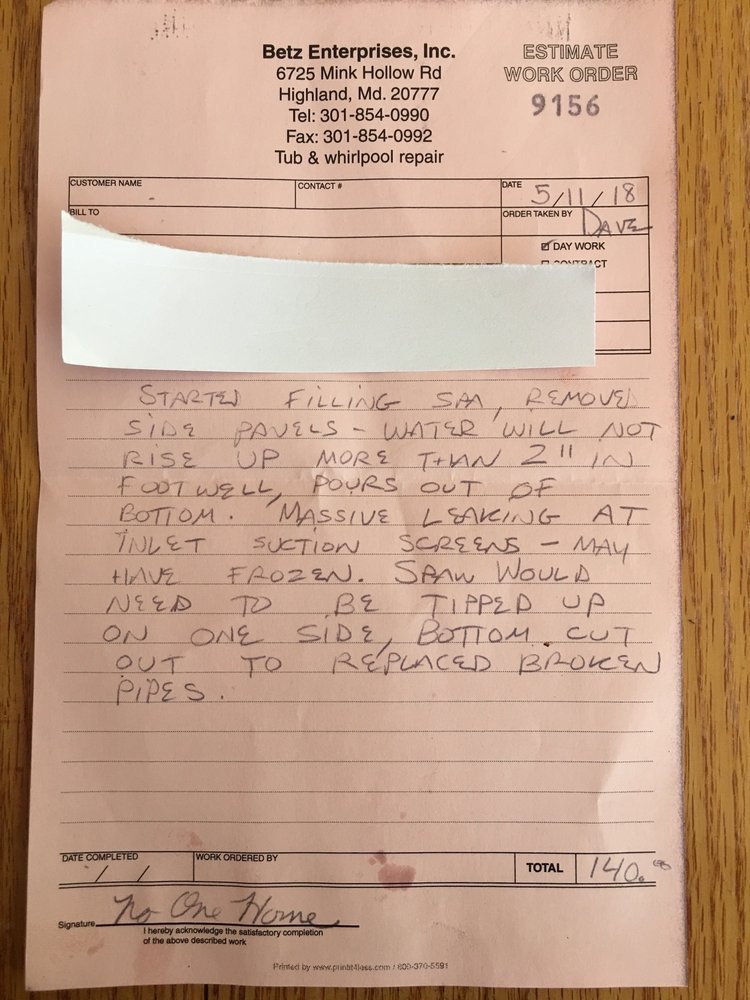 Betz Enterprises, Inc.
6725 Mink Hollow Rd
Highland, Md. 20777
Tel: 301-854-0990
Fax: 301-854-0992
Tub & whirlpool repair
ESTIMATE
WORK ORDER
9156
CUSTOMER NAME
CONTACT #
DATE 5/11/18
BILL TO
ORDER TAKEN BY DAVE
DAY WORK
CONTRACT
STARTED FILLING SPA, REMOVED
SIDE PANELS - WATER WILL NOT
RISE UP MORE THAN 2" IN
FOOTWELL, POURS OUT OF
BOTTOM. MASSIVE LEAKING AT
INLET SUCTION SCREENS - MAY
HAVE FROZEN. WOULD
NEED TO BE TIPPED UP
ON ONE SIDE, BOTTOM CUT
OUT TO REPLACED BROKEN
PIPES.
DATE COMPLETED
/ /
WORK ORDERED BY
TOTAL 140.00
Signature No One Home
I hereby acknowledge the satisfactory completion
of the above described work
Printed by www.print4less.com / 800-370-5591